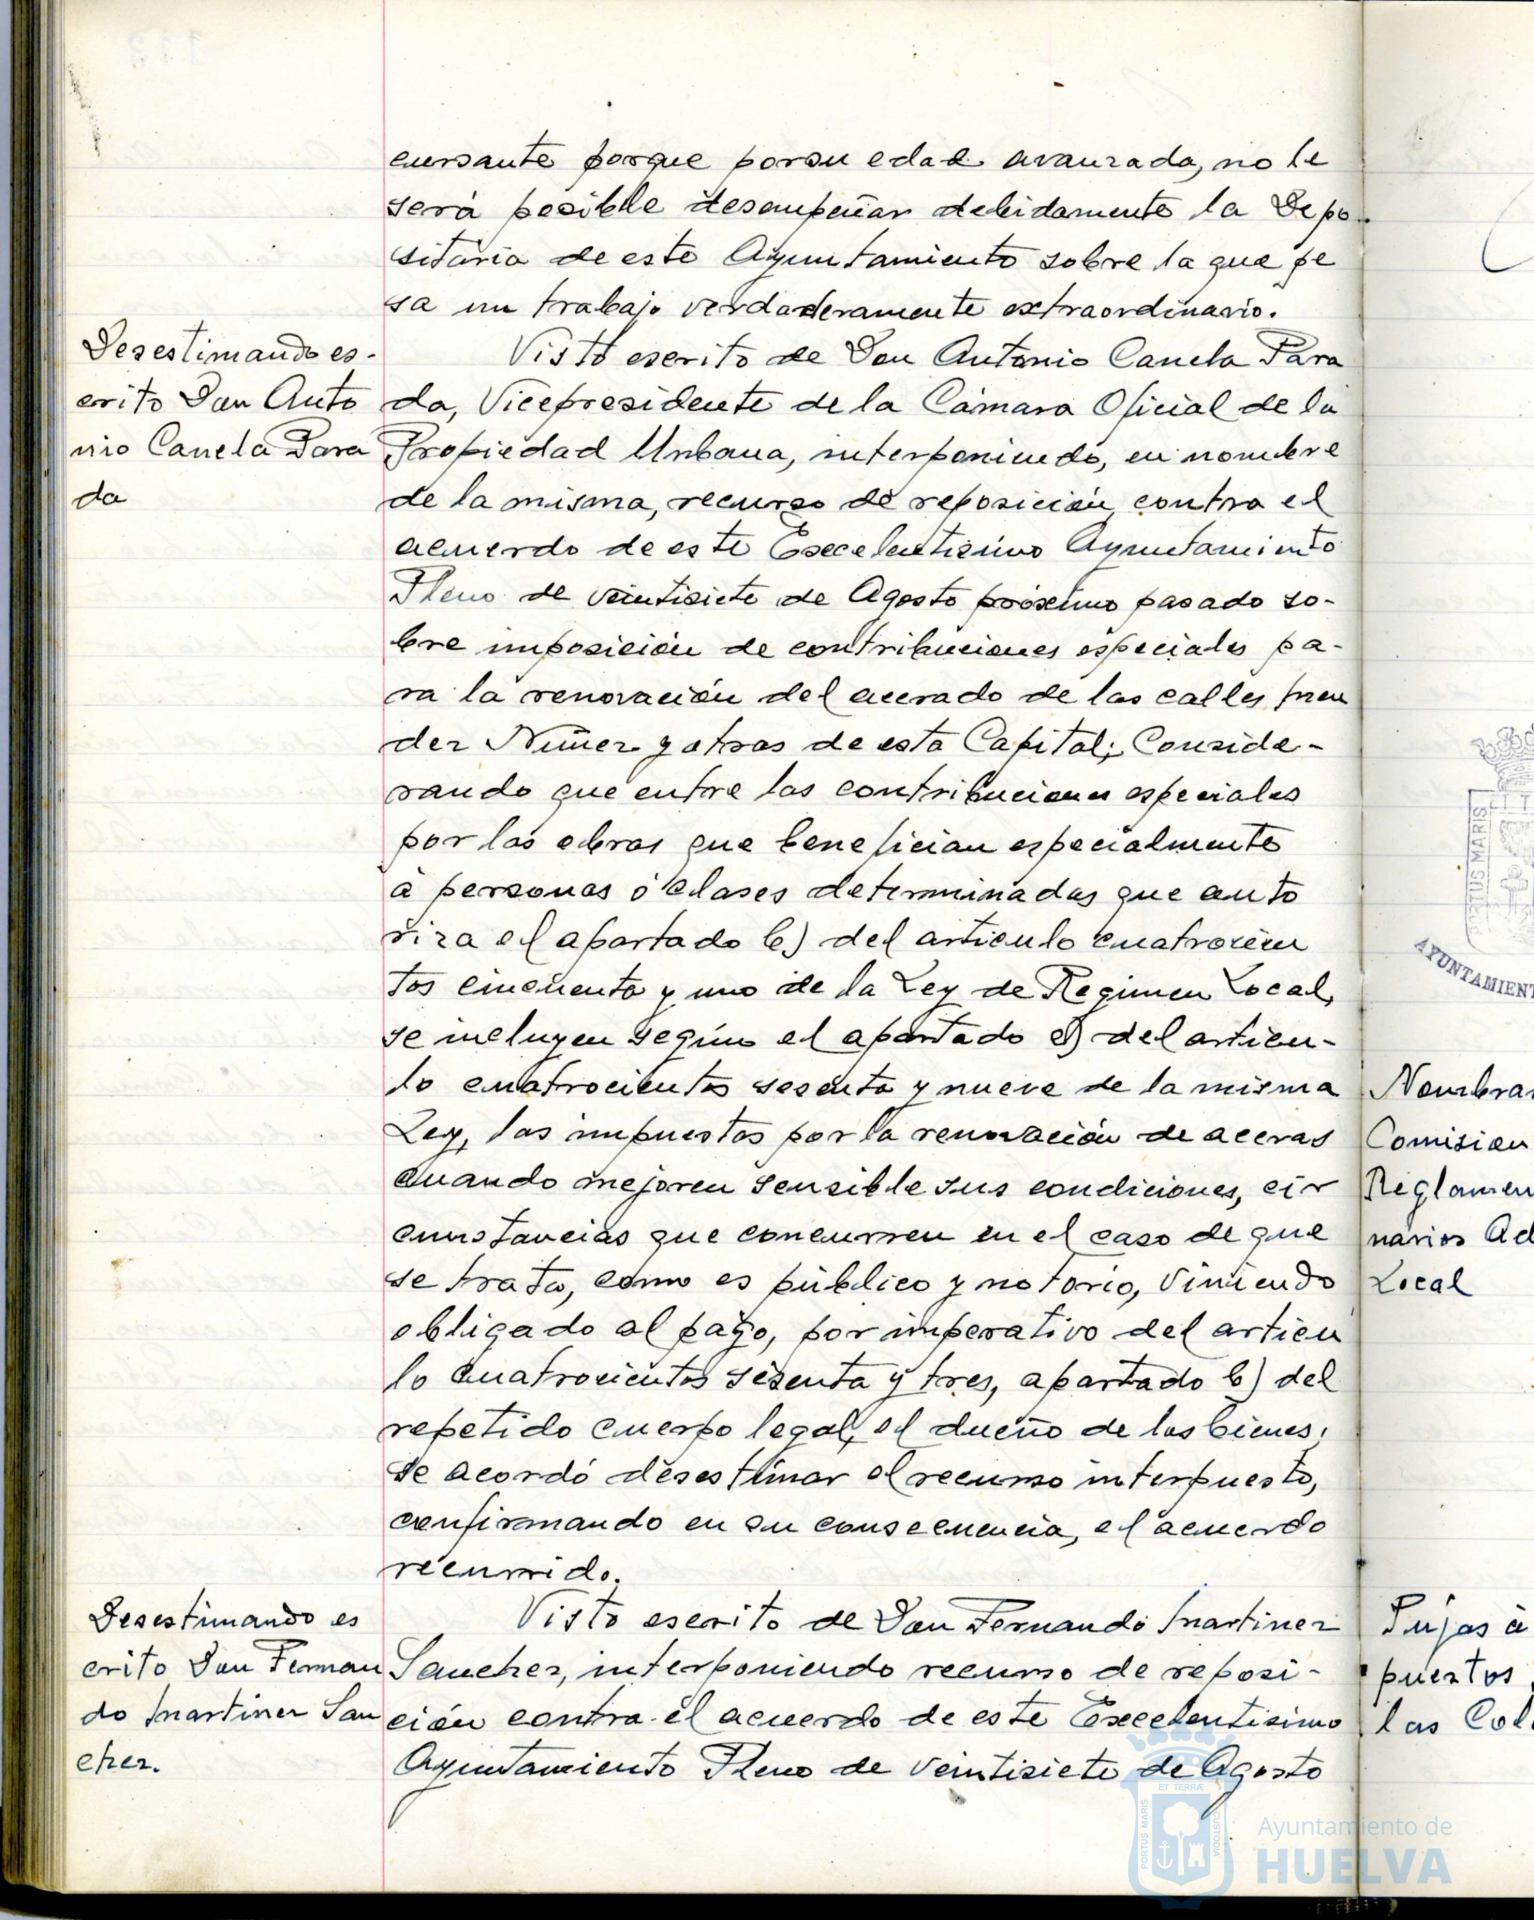 cursante porque por su edad avanzada, no le
será posible desempeñar debidamente la Depo-
sitaría de este Ayuntamiento sobre la que pe
sa un trabajo verdaderamente extraordinario.
Desestimando es-
crito Don Anto
nio Canela Para
da
Visto escrito de Don Antonio Canela Para
da, Vicepresidente de la Cámara Oficial de la
Propiedad Urbana, interponiendo, en nombre
de la misma, recurso de reposición, contra el
acuerdo de este Execelentísimo Ayuntamiento
Pleno de veintisiete de Agosto próximo pasado so-
bre imposición de contribuciones especiales pa-
ra la renovación del acerado de las calles Men
dez Nuñez y otras de esta Capital; Conside-
rando que entre las contribuciones especiales
por las obras que benefician especialmente
á personas ó clases determinadas que auto
riza el apartado b) del articulo cuatrocien
tos cincuenta y uno de la Ley de Regimen Local,
se incluyen según el apartado e) del articu-
lo cuatrocientos sesenta y nueve de la misma
Ley, las impuestas por la renovación de aceras
cuando mejoren sensible sus condiciones, cir
cunstancias que concurren en el caso de que
se trata, como es público y notorio, viniendo
obligado al pago, por imperativo del articu
lo cuatrocientos sesenta y tres, apartado b) del
repetido cuerpo legal, el dueño de los bienes;
se acordó desestimar el recurso interpuesto,
confirmando en su consecuencia, el acuerdo
recurrido.
Desestimando es
crito Don Fernan
do Martinez San
chez.
Visto escrito de Don Fernando Martinez
Sanchez, interponiendo recurso de reposi-
ción contra el acuerdo de este Execelentísimo
Ayuntamiento Pleno de veintisiete de Agosto
PORTUS MARIS
AYUNTAMIENT
Nombrar
Comision
Reglamen
narios Ad
Local
Pujas á
puestos
las Col
ET TERRÆ
PORTUS MARIS
CUSTODIA
Ayuntamiento de
HUELVA